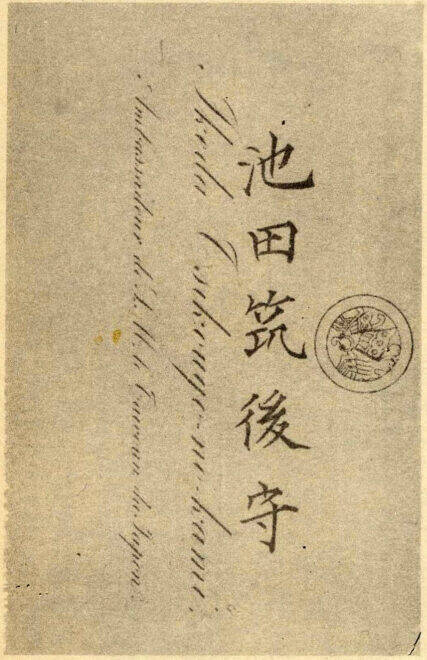 池田筑後守
Ikeda Tsikougo-no-kami.
Ambassadeur de S. M. le Taïcoun du Japon.